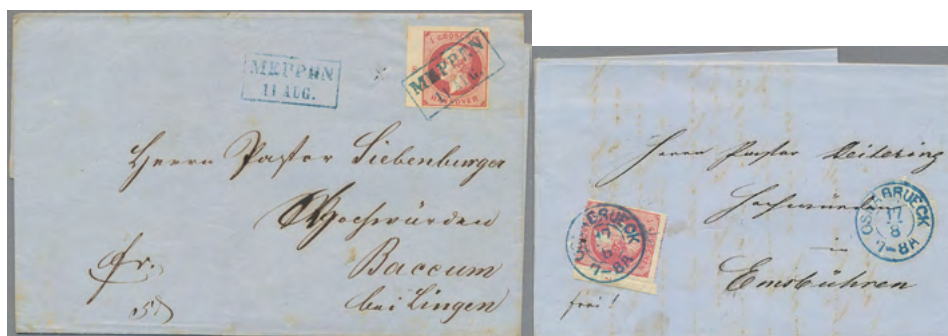 MEPPEN
11 AUG.
1 GROSCHEN
MEPPEN
11 AUG.
HANNOVER
Herrn Pastor Siebenburger
Hochwürden
Baccum
bei Lingen
fr.
Herrn Pastor Deitering
Hochwürden
in
Emsbühren
frei!
OSNABRUECK
17
8
7-8A
OSNABRUECK
17
8
7-8A